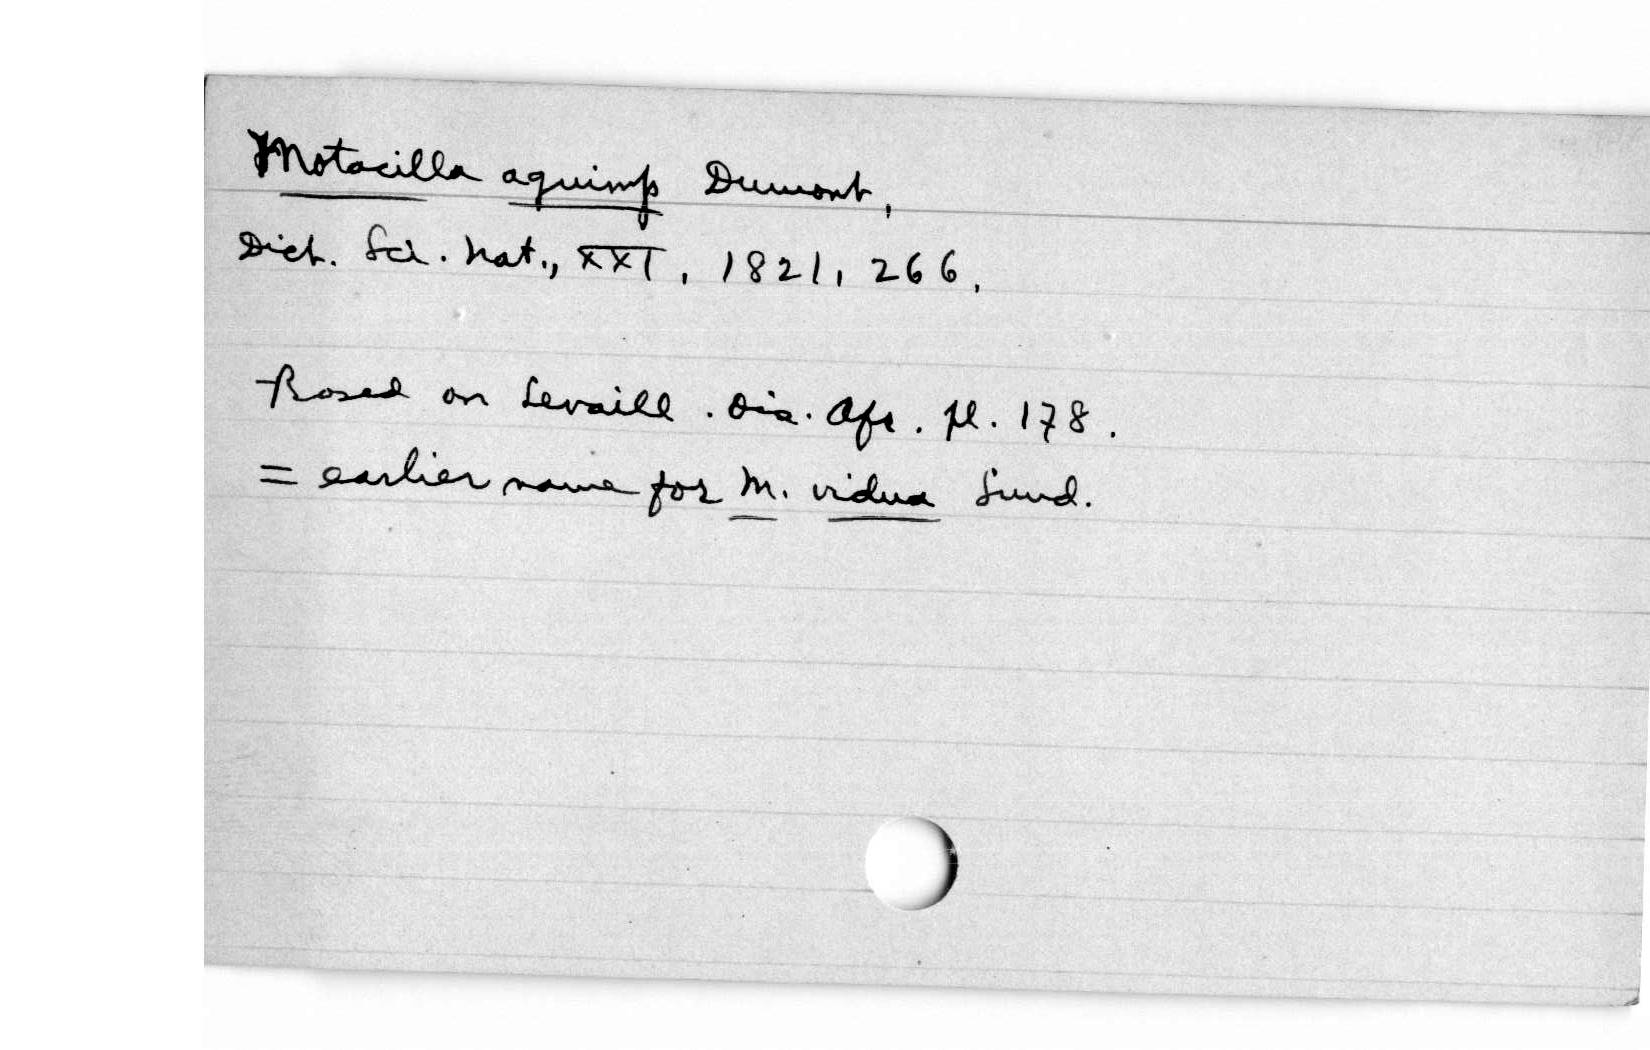 Motacilla aguimp Dumont,
Dict. Sci. Nat., XXI, 1821, 266,
Based on Levaill. Ois. Afr. pl. 178.
= earlier name for M. vidua Sund.